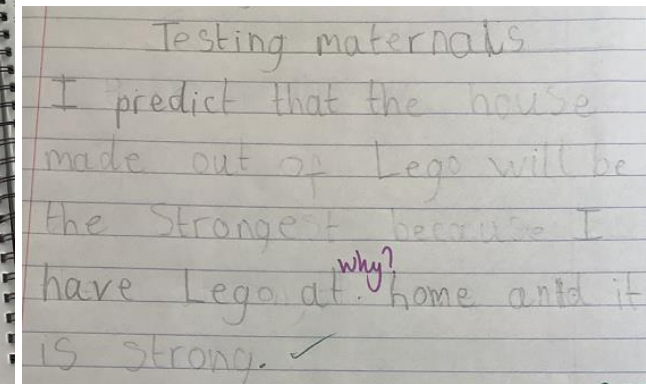 Testing maternals
I predict that the house
made out of Lego will be
the Strongest because I
why?
have Lego at home antd it
is strong.